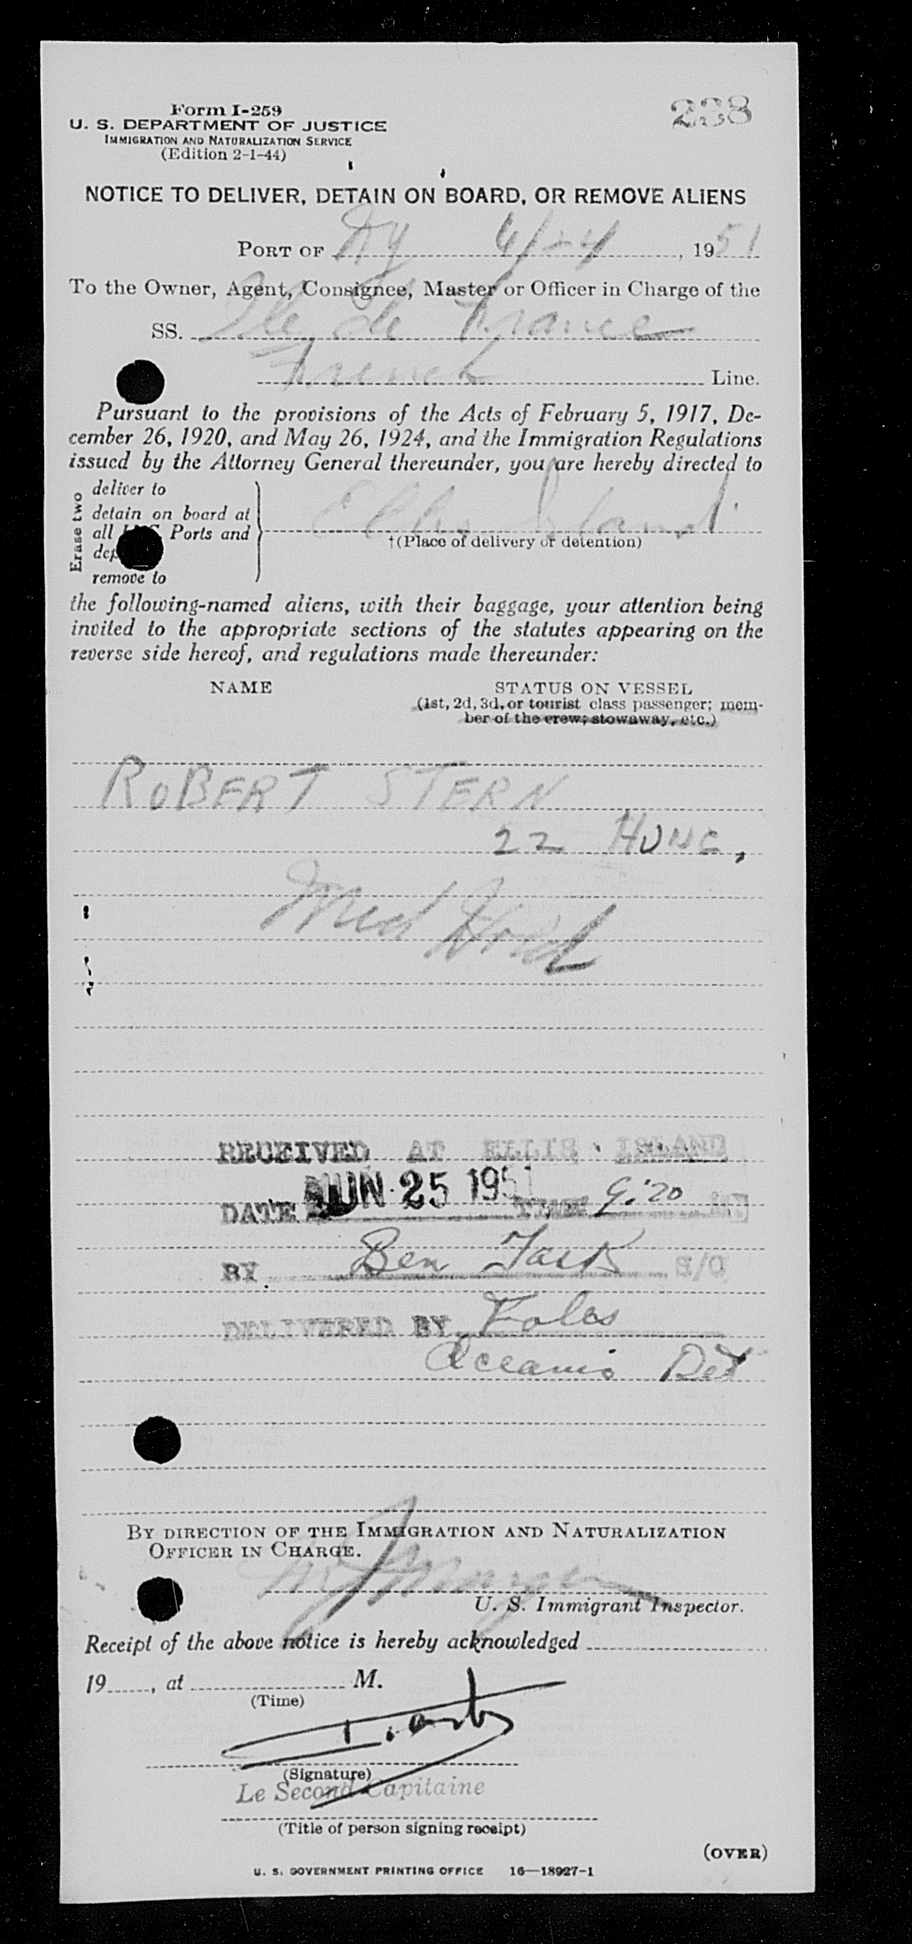 Form I-259
238
U. S. DEPARTMENT OF JUSTICE
IMMIGRATION AND NATURALIZATION SERVICE
(Edition 2-1-44)
NOTICE TO DELIVER, DETAIN ON BOARD, OR REMOVE ALIENS
PORT OF NY 6/24, 1951
To the Owner, Agent, Consignee, Master or Officer in Charge of the
SS. Ile de France
French Line.
Pursuant to the provisions of the Acts of February 5, 1917, De-
cember 26, 1920, and May 26, 1924, and the Immigration Regulations
issued by the Attorney General thereunder, you are hereby directed to
Erase two
deliver to
detain on board at
all Ports and
remove to
Ellis Island
†(Place of delivery or detention)
the following-named aliens, with their baggage, your attention being
invited to the appropriate sections of the statutes appearing on the
reverse side hereof, and regulations made thereunder:
NAME STATUS ON VESSEL
(1st, 2d, 3d, or tourist class passenger; mem-
ber of the crew; stowaway, etc.)
ROBERT STERN
22 HUNG,
Med Hold
RECEIVED AT ELLIS ISLAND
DATE JUN 25 1951 TIME 9:20
BY Ben Task S/O
DELIVERED BY
Det
BY DIRECTION OF THE IMMIGRATION AND NATURALIZATION
OFFICER IN CHARGE.
U. S. Immigrant Inspector.
Receipt of the above notice is hereby acknowledged
19, at M.
(Time)
(Signature)
Le Second Capitaine
(Title of person signing receipt)
(OVER)
U. S. GOVERNMENT PRINTING OFFICE 16—18927-1